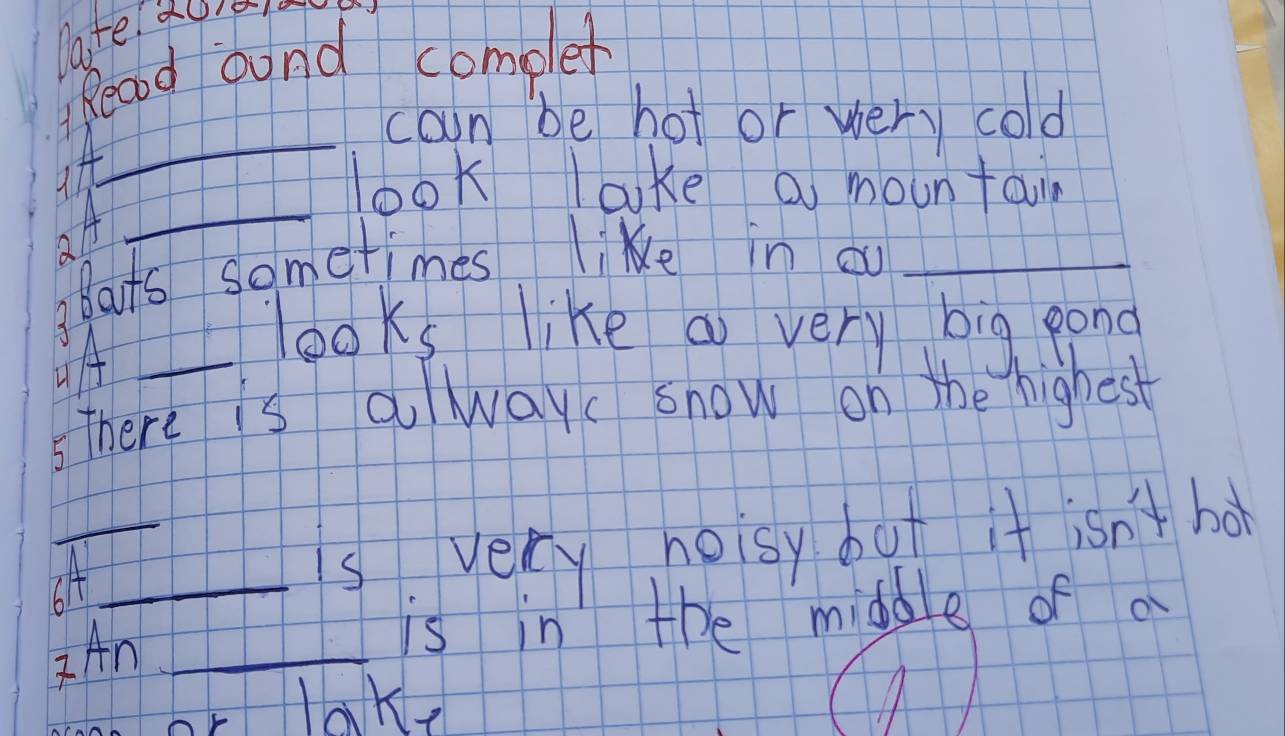 Date:
1 Read and complet
1 A ________ can be hot or wery cold
2 A ________ look lake a mountain
3 Bats sometimes like in a ________
4 A ____ looks like a very big pond
5 There is allways snow on the highest
____
6 A ________ is very noisy but it isn't hot
7 An ________ is in the middle of a
or lake